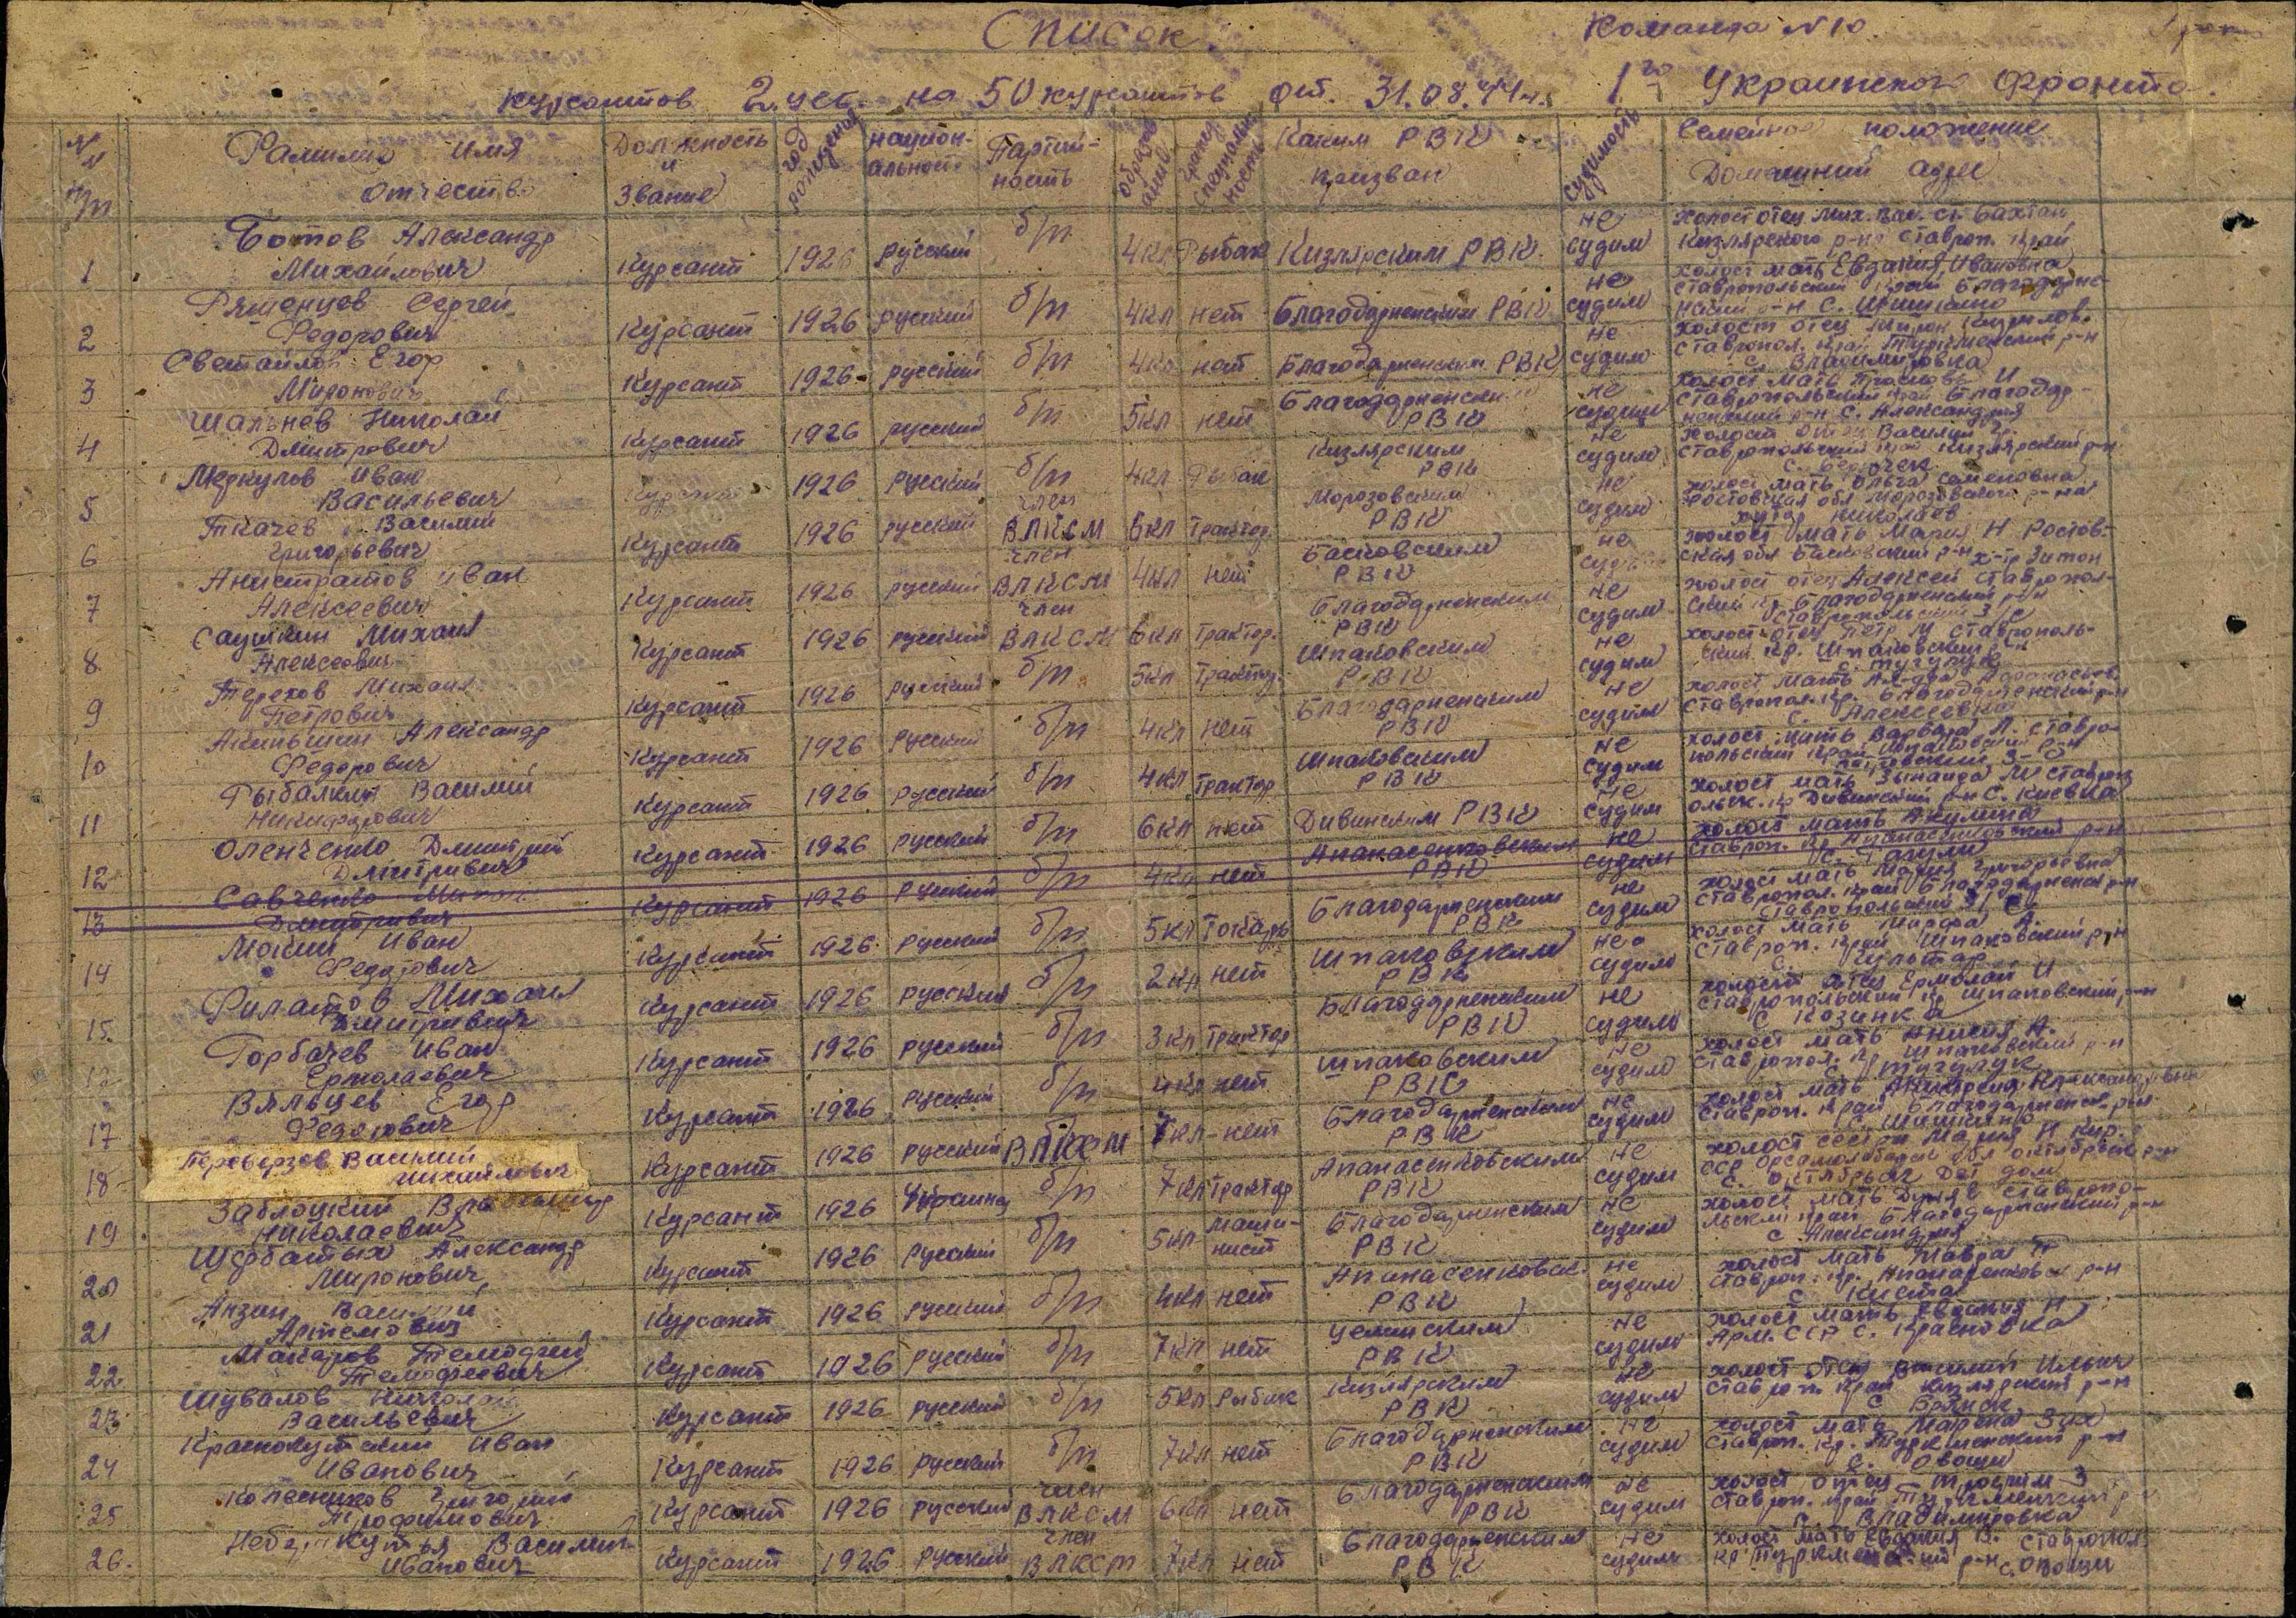 Список.
Команда №10.
курсантов 2 уст. на 50 курсантов от. 31.08.44 г. 1го Украинского Фронта.
№№ п/п Фамилия имя отчество Должность и Звание год рождения национальность Партийность образование гражд. специальность Каким РВК призван судимость Семейное положение Домашний адрес
1 Ботов Александр Михайлович Курсант 1926 русский б/п 4кл Рыбак Кизлярским РВК. не судим холост отец Мих. Вас. ст. Бахтан Кизлярского р-на Ставроп. Край
2 Ряшенцев Сергей Федорович Курсант 1926 русский б/п 4кл нет Благодарненским РВК не судим холост мать Евдокия Ивановна Ставропольский край Благодарненский р-н с. Шишкино
3 Светайлов Егор Миронович Курсант 1926 русский б/п 4кл нет Благодарненским РВК не судим холост отец Мирон Ставропол. край Туркменский р-н с. Владимировка
4 Шальнев Николай Дмитрович Курсант 1926 русский б/п 5кл нет Благодарненским РВК не судим холост мать И Ставропольский край Благодарненский р-н с. Александрия
5 Меркулов Иван Васильевич Курсант 1926 русский б/п 4кл Рыбак Кизлярским РВК не судим холост отец Василий Ставропольский край Кизлярский р-н
6 Ткачев Василий Григорьевич Курсант 1926 русский член ВЛКСМ 6кл Трактор. Морозовским РВК не судим холост мать Ольга Семеновна Ростовская обл Морозовского р-на хутор Николаев
7 Анистратов Иван Алексеевич Курсант 1926 русский член ВЛКСМ 4кл нет РВК не судим холост мать Мария Н Ростовская обл р-н х-тр
8 Саушкин Михаил Алексеевич Курсант 1926 русский член ВЛКСМ 6кл Трактор. Благодарненским РВК не судим холост отец Алексей Ставропольский кр. Благодарненский р-н Ставропольский з/с
9 Терехов Михаил Петрович Курсант 1926 русский б/п 5кл Трактор. Шпаковским РВК не судим холост отец Петр М Ставропольский кр. Шпаковский с. Тугулук
10 Акиньшин Александр Федорович Курсант 1926 русский б/п 4кл нет Благодарненским РВК не судим холост мать Ставропол. кр. Благодарненский р-н с. Алексеевка
11 Рыбалкин Василий Никифорович Курсант 1926 русский б/п 4кл Трактор Шпаковским РВК не судим холост мать Варвара П. Ставропольский край Шпаковский р-н
12 Оленченко Дмитрий Дмитривич Курсант 1926 русский б/п 6кл нет Дивинским РВК не судим холост мать Зинаида М Ставропольск. кр Дивинский р-н с. Киевка
13 Савченко Дмитривич Курсант 1926 русский б/п 4кл нет Апанасенковским РВК не судим холост мать Акулина Ставроп. кр Апанасенковский р-н с.
14 Мокий Иван Федорович Курсант 1926 русский б/п 5кл Токарь Благодарненским РВК не судим холост мать Мария Григорьевна Ставропол. край Благодарненский р-н Ставропольский з/с
15. Филатов Михаил Дмитривич Курсант 1926 русский б/п 2кл нет Шпаковским РВК не судим холост мать Марфа А. Ставроп. край Шпаковский р-н
Горбачев Иван Ермолаевич Курсант 1926 русский б/п 3кл трактор Благодарненским РВК не судим холост отец Ермолай И Ставропольский кр Шпаковский р-н с Козинка
17 Вяльцев Егор Федорович Курсант 1926 русский б/п 4кл нет Шпаковским РВК не судим холост мать А. Ставропол. кр Шпаковский р-н с Тугулук
18 Переверзев Василий Михайлович Курсант 1926 русский ВЛКСМ 7кл нет Благодарненским РВК не судим холост мать Ставроп. край Благодарненск. р-н с. Шишкино
19 Заблоцкий Владимир Николаевич Курсант 1926 украинец б/п 7кл трактор Апанасенковским РВК не судим холост сестра Мария Н ССР обл октябрьск р-н с. Октябрьск Дет дом
20 Щербатых Александр Миронович Курсант 1926 русский б/п 5кл машинист Благодарненским РВК не судим холост мать Ставропольский край Благодарненский р-н с Александрия
21 Анзин Василий Артемович Курсант 1926 русский б/п 4кл нет Апанасенковск. РВК не судим холост мать Ставроп. кр. Апанасенковск р-н с Киста
22 Макаров Темофей Темофеевич Курсант 1926 русский б/п 7кл нет РВК не судим холост мать Евдокия Н Арм. ССР с. Красновка
23 Шувалов Николай Васильевич Курсант 1926 русский б/п 5кл Рыбак Кизлярским РВК не судим холост отец Василий Ильич Ставроп. край Кизлярский р-н с Брянск
24 Краснокутский Иван Иванович Курсант 1926 русский б/п 7кл нет Благодарненским РВК не судим холост мать Ставроп. кр. Туркменский р-н с. Овощи
25 Колесников Григорий Трофимович Курсант 1926 русский член ВЛКСМ 6кл нет Благодарненским РВК не судим холост отец Трофим З Ставроп. край Туркменский р-н с. Владимировка
26. Василий Иванович Курсант 1926 русский член ВЛКСМ 7кл нет Благодарненским РВК не судим холост мать Евдокия В. Ставропол. кр Туркменский р-н с. Овощи